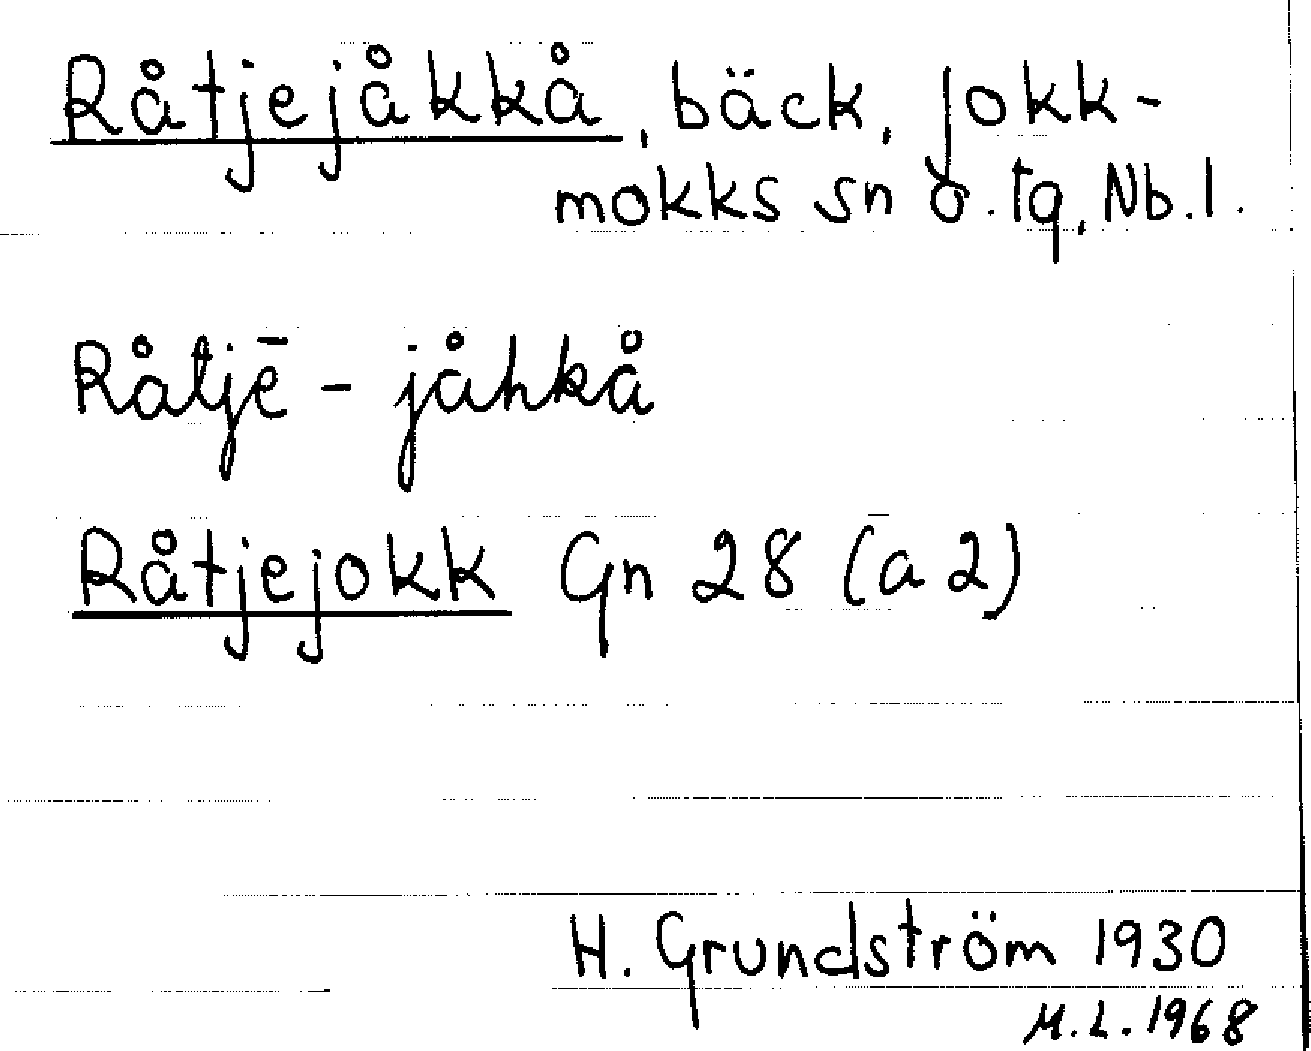 Råtjejåkkå, bäck, Jokk-
mokks sn o. tg, Nb. l.
Råtjē - jåhkå
Råtjejokk Gn 28 (a 2)
H. Grundström 1930
M.L. 1968